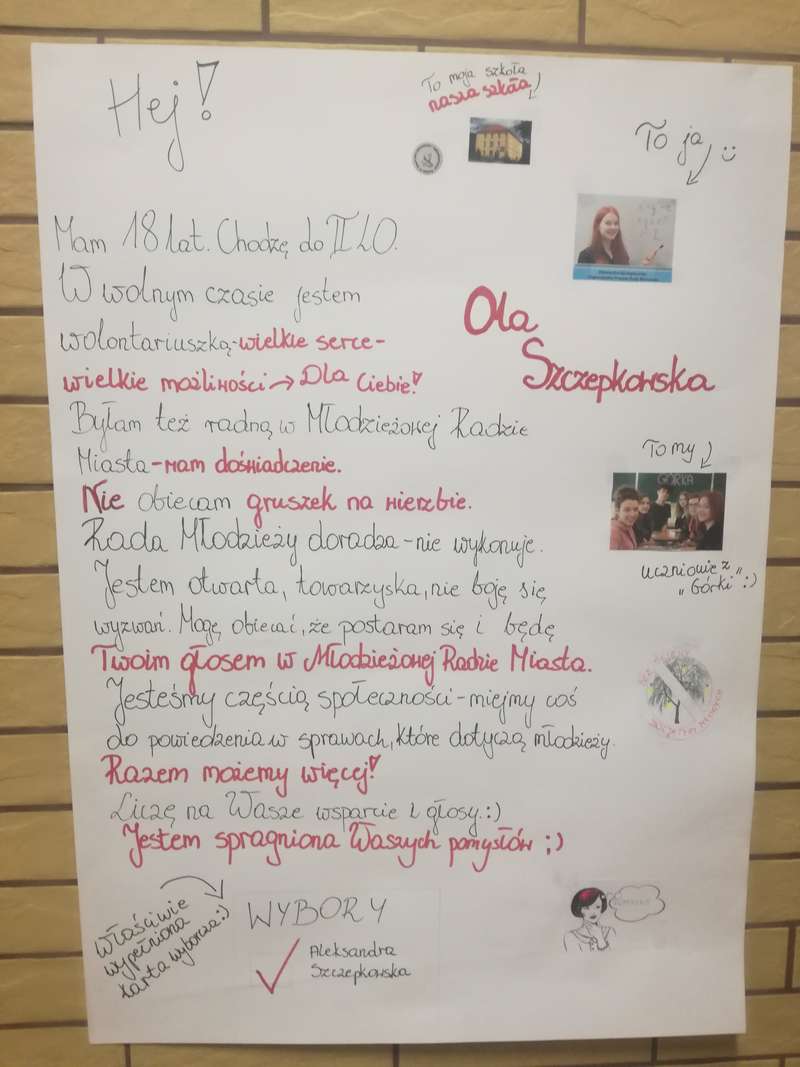 Hej!
To moja szkoła
nasza szkoła!
To ja :)
Mam 18 lat. Chodzę do II LO.
W wolnym czasie jestem
wolontariuszką-wielkie serce-
wielkie możliwości → Dla Ciebie!
Ola
Szczepkowska
Byłam też radną w Młodzieżowej Radzie
Miasta-mam doświadczenie.
Nie obiecam gruszek na wierzbie.
Rada Młodzieży doradza-nie wykonuje.
Jestem otwarta, towarzyska, nie boję się
wyzwań. Mogę obiecać, że postaram się i będę
Twoim głosem w Młodzieżowej Radzie Miasta.
Jesteśmy częścią społeczności-miejmy coś
do powiedzenia w sprawach, które dotyczą młodzieży.
Razem możemy więcej!
Liczę na Wasze wsparcie i głosy.:)
Jestem spragniona Waszych pomysłów ;)
To my
GÓRKA
uczniowie z „
„Górki" :)
Właściwie
wypełniona
karta wyborcza:)
WYBORY
Aleksandra
Szczepkowska